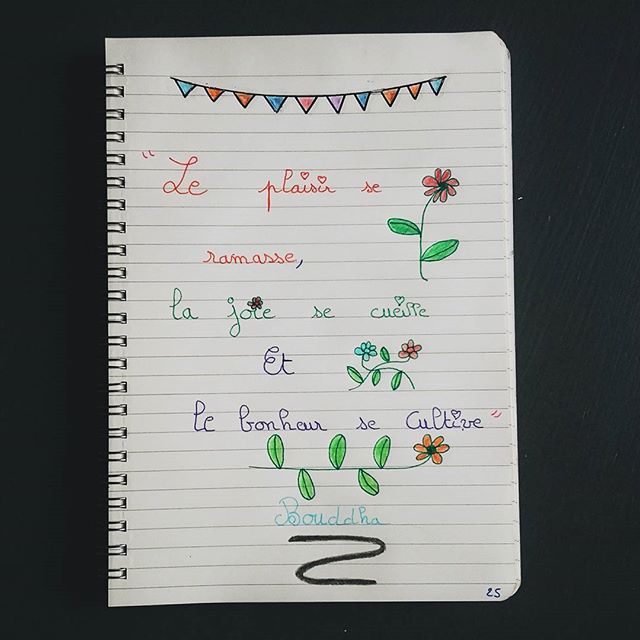 "Le plaisir se
ramasse,
la joie se cueille
Et
le bonheur se cultive"
Bouddha
25